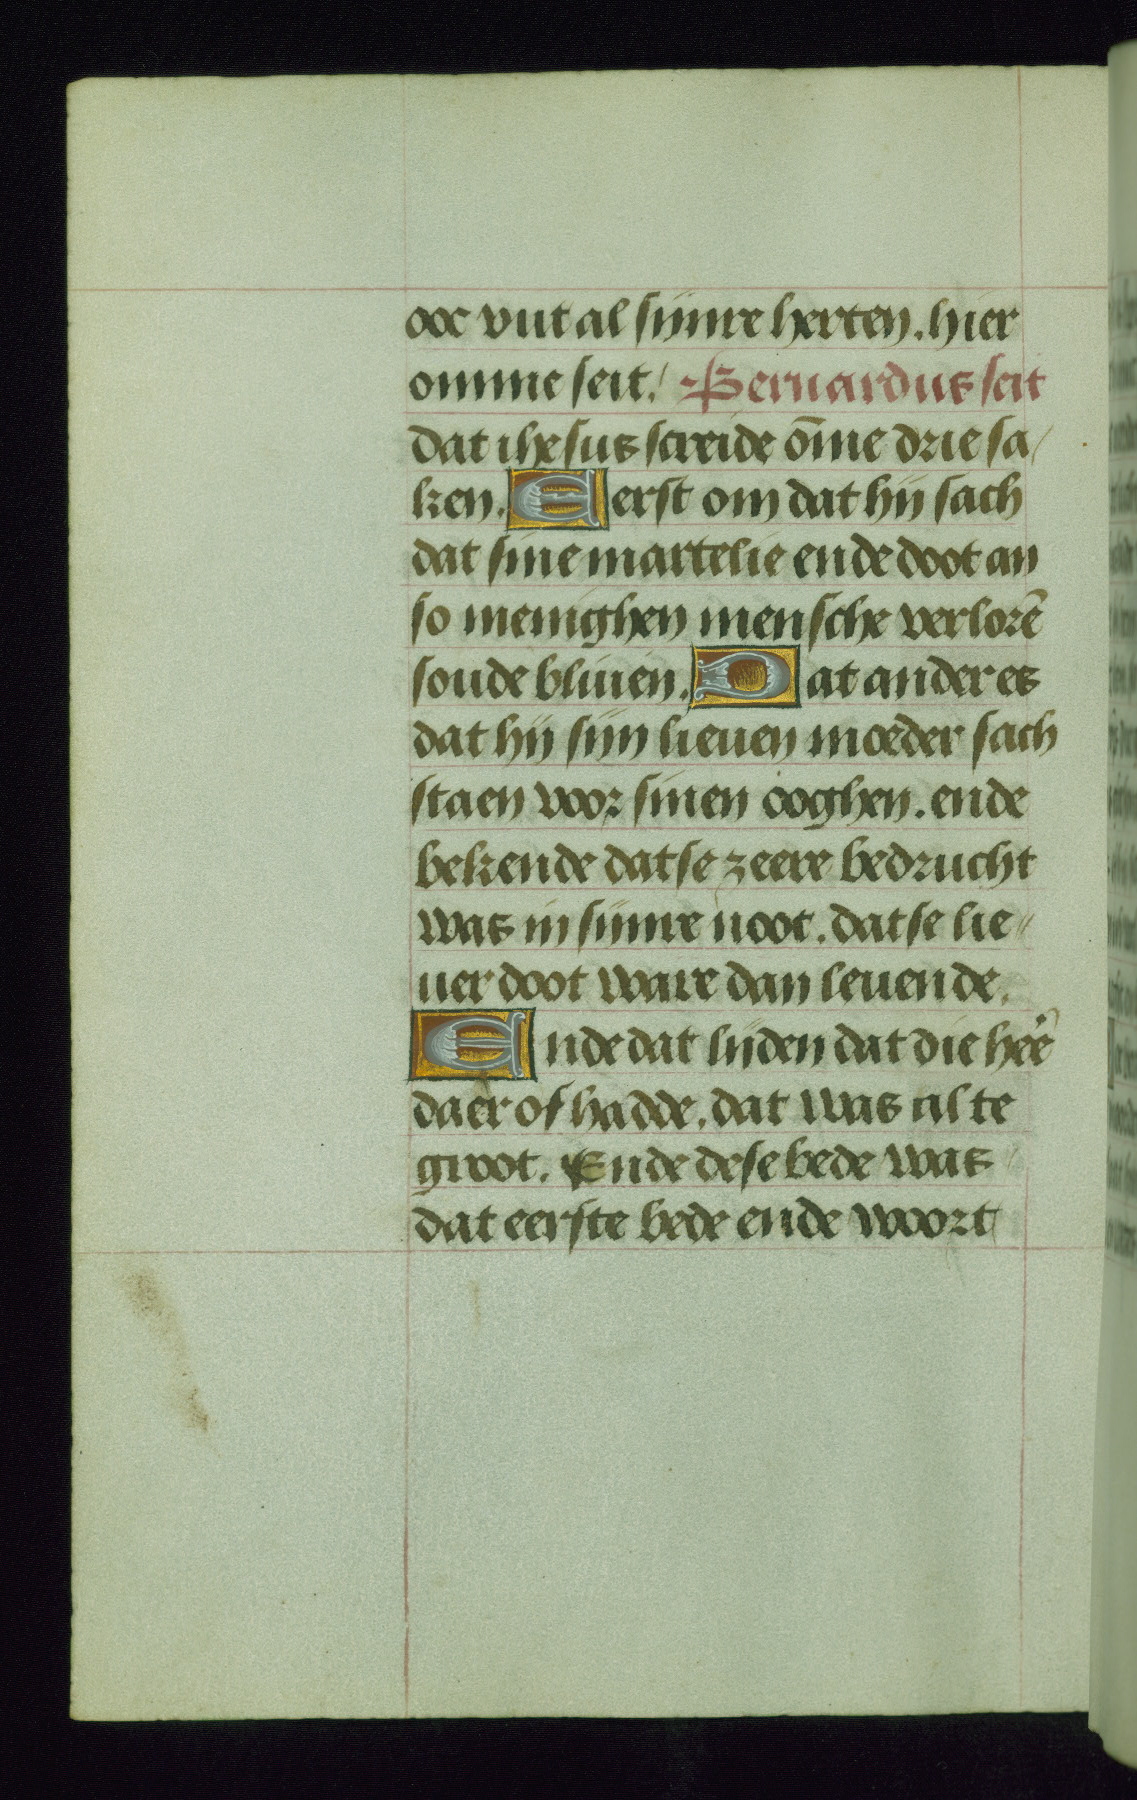 ooc vut al siinre herten. hier
omme seit. Bernardus seit
dat ihesus screide o̅me drie sa/
ken. Eerst om dat hij sach
dat sine martelie ende doot an
so menighen mensche verlorē
soude bliuen. Dat ander es
dat hij sijn lieuen moeder sach
staen voor sinen ooghen. ende
bekende datse zeere bedrucht
was in siinre noot. datse lie//
uer doot ware dan leuende.
Ende dat lijden dat die heē
daer of hadde. dat was al te
groot. Ende dese bede was
dat eerste bede ende woort